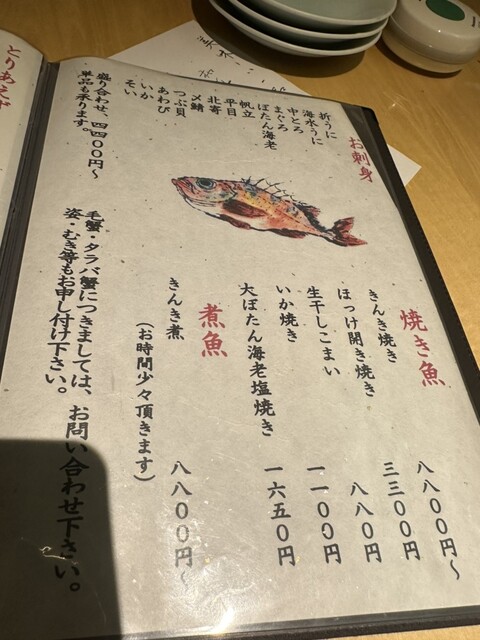 お刺身
折うに
海水うに
中とろ
まぐろ
ぼたん海老
帆立
平目
〆鯖
北寄
つぶ貝
あわび
いか
そい
盛り合わせ、四四〇〇円〜
単品も承ります。
焼き魚
八八〇〇円〜
きんき焼き
三三〇〇円
ほっけ開き焼き
八八〇円
生干しこまい
一一〇〇円
いか焼き
一六五〇円
大ぼたん海老塩焼き
煮魚
きんき煮
八八〇〇円〜
(お時間少々頂きます)
毛蟹・タラバ蟹につきましては、お問い合わせ下さい。
姿・むき等もお申し付け下さい。
とりあえず